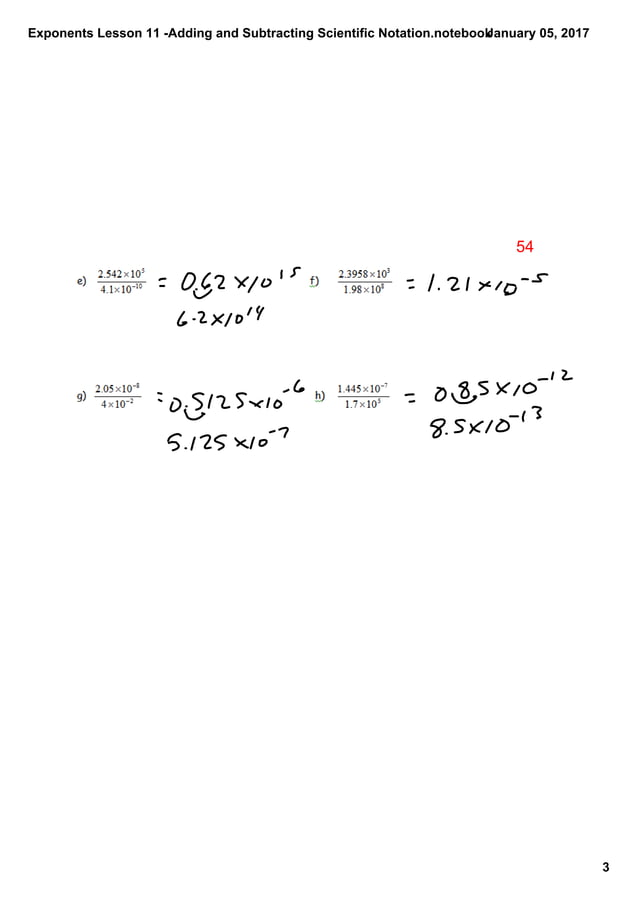 Exponents Lesson 11 -Adding and Subtracting Scientific Notation.notebook January 05, 2017
54
e) 2.542×10⁵ / 4.1×10⁻¹⁰ = 0.62×10¹⁵
6.2×10¹⁴
f) 2.3958×10³ / 1.98×10⁸ = 1.21×10⁻⁵
g) 2.05×10⁻⁸ / 4×10⁻² = 0.5125×10⁻⁶
5.125×10⁻⁷
h) 1.445×10⁻⁷ / 1.7×10⁵ = 0.85×10⁻¹²
8.5×10⁻¹³
3